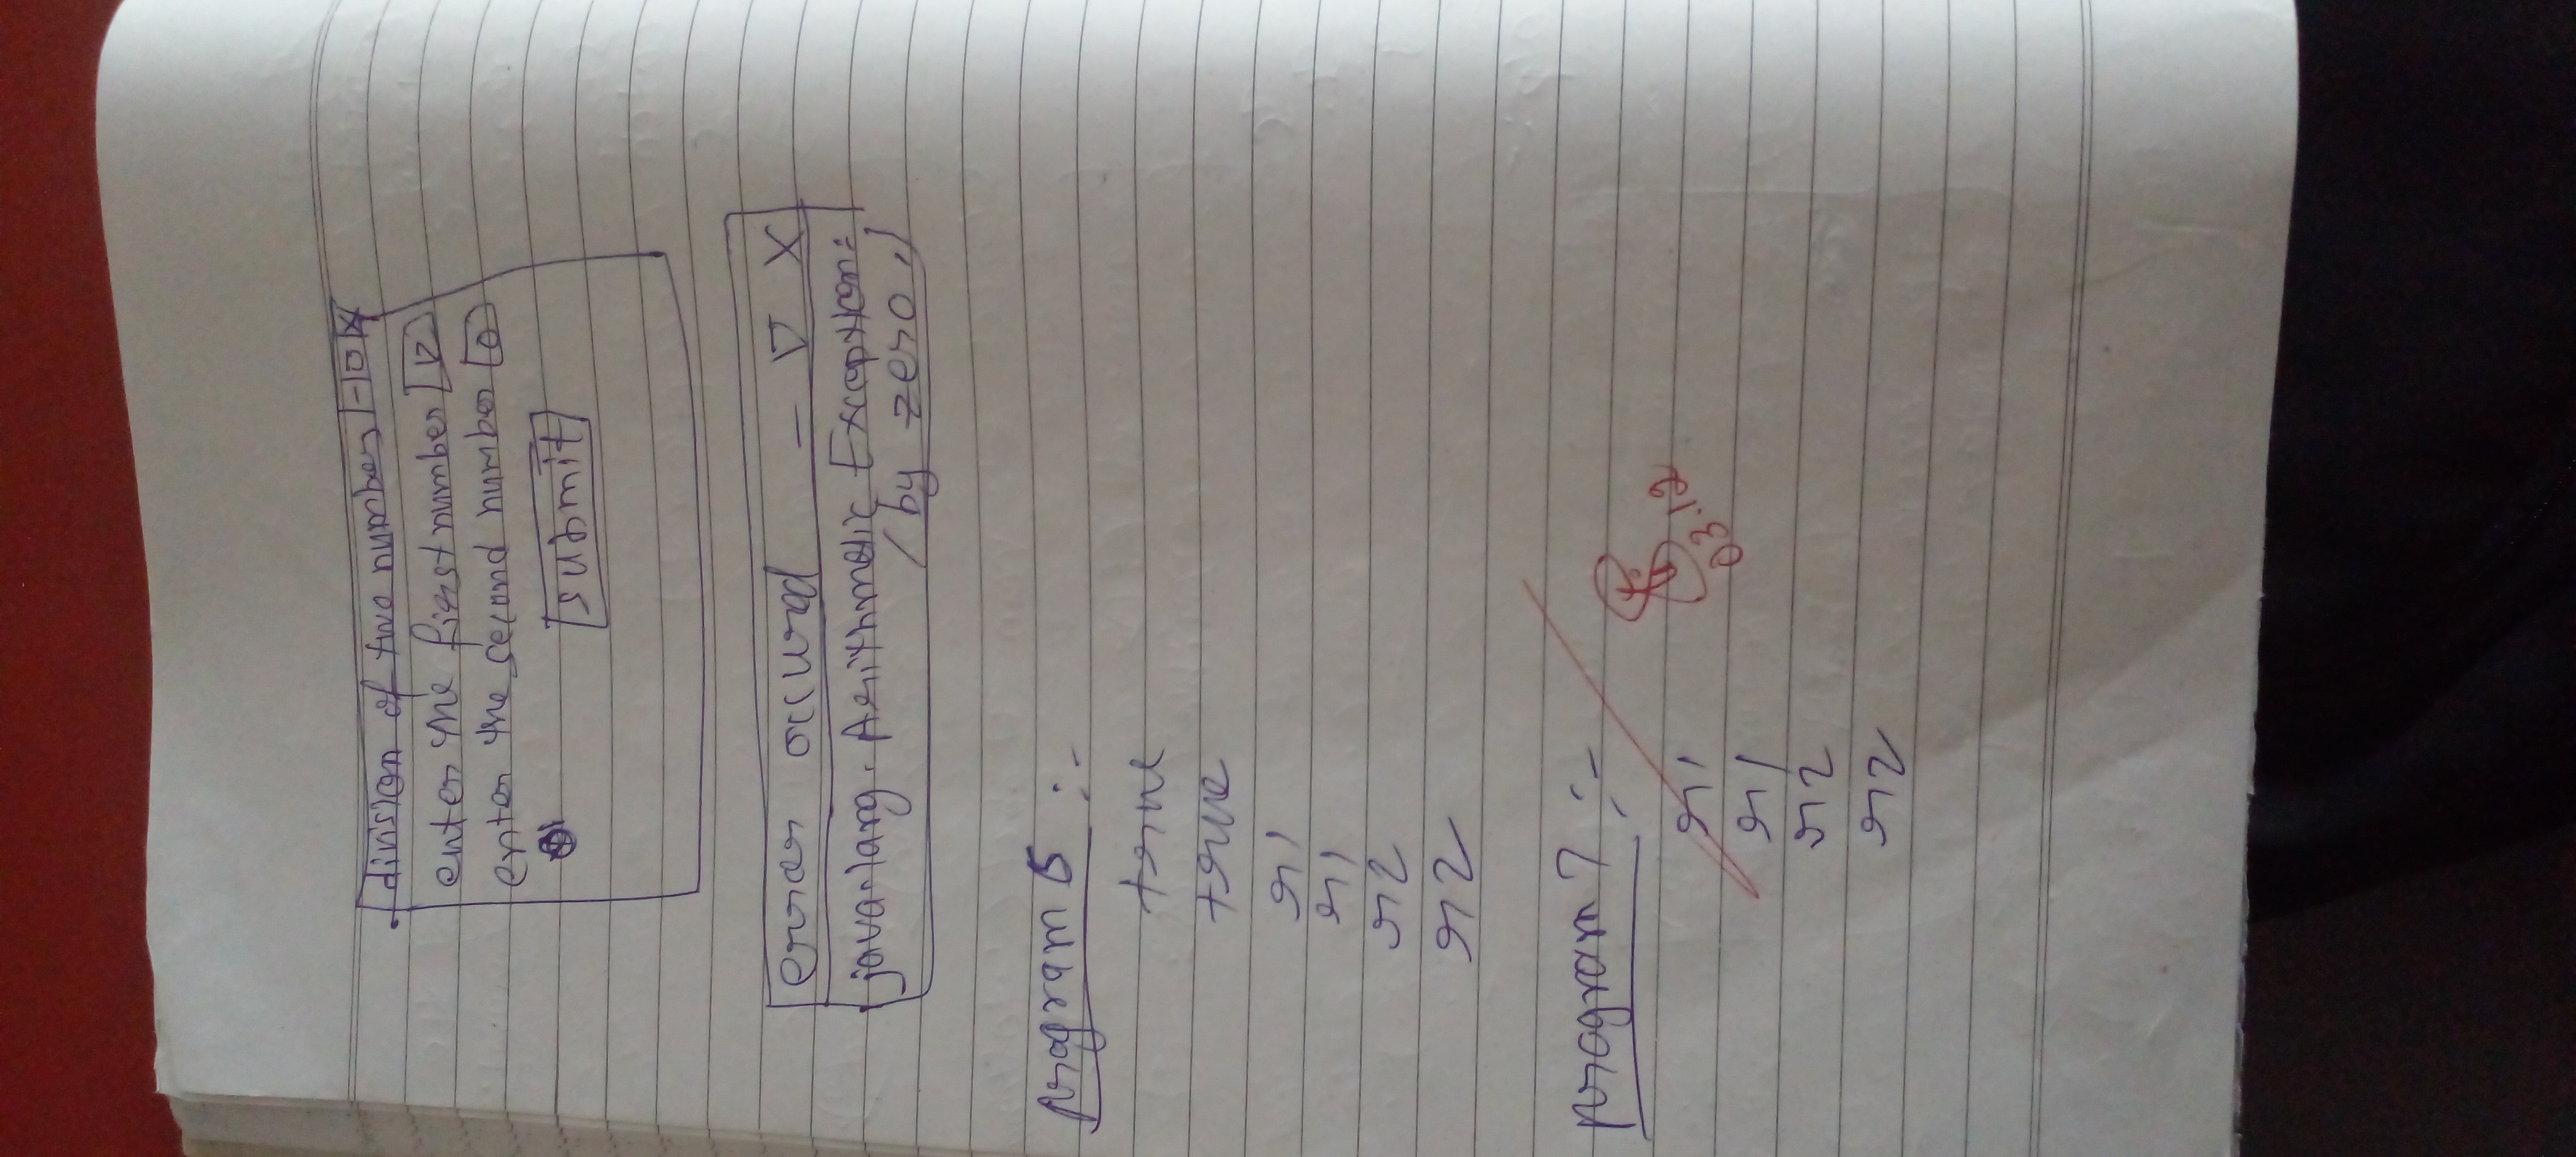 division of two number - □ x
enter the first number 12
enter the second number 0
submit
error occured - ▽ X
java.lang. Arithmetic Exception:
/ by zero
program 6 :-
true
true
r1
r1
r2
r2
program 7 :-
r1
r1
r2
r2
03.12